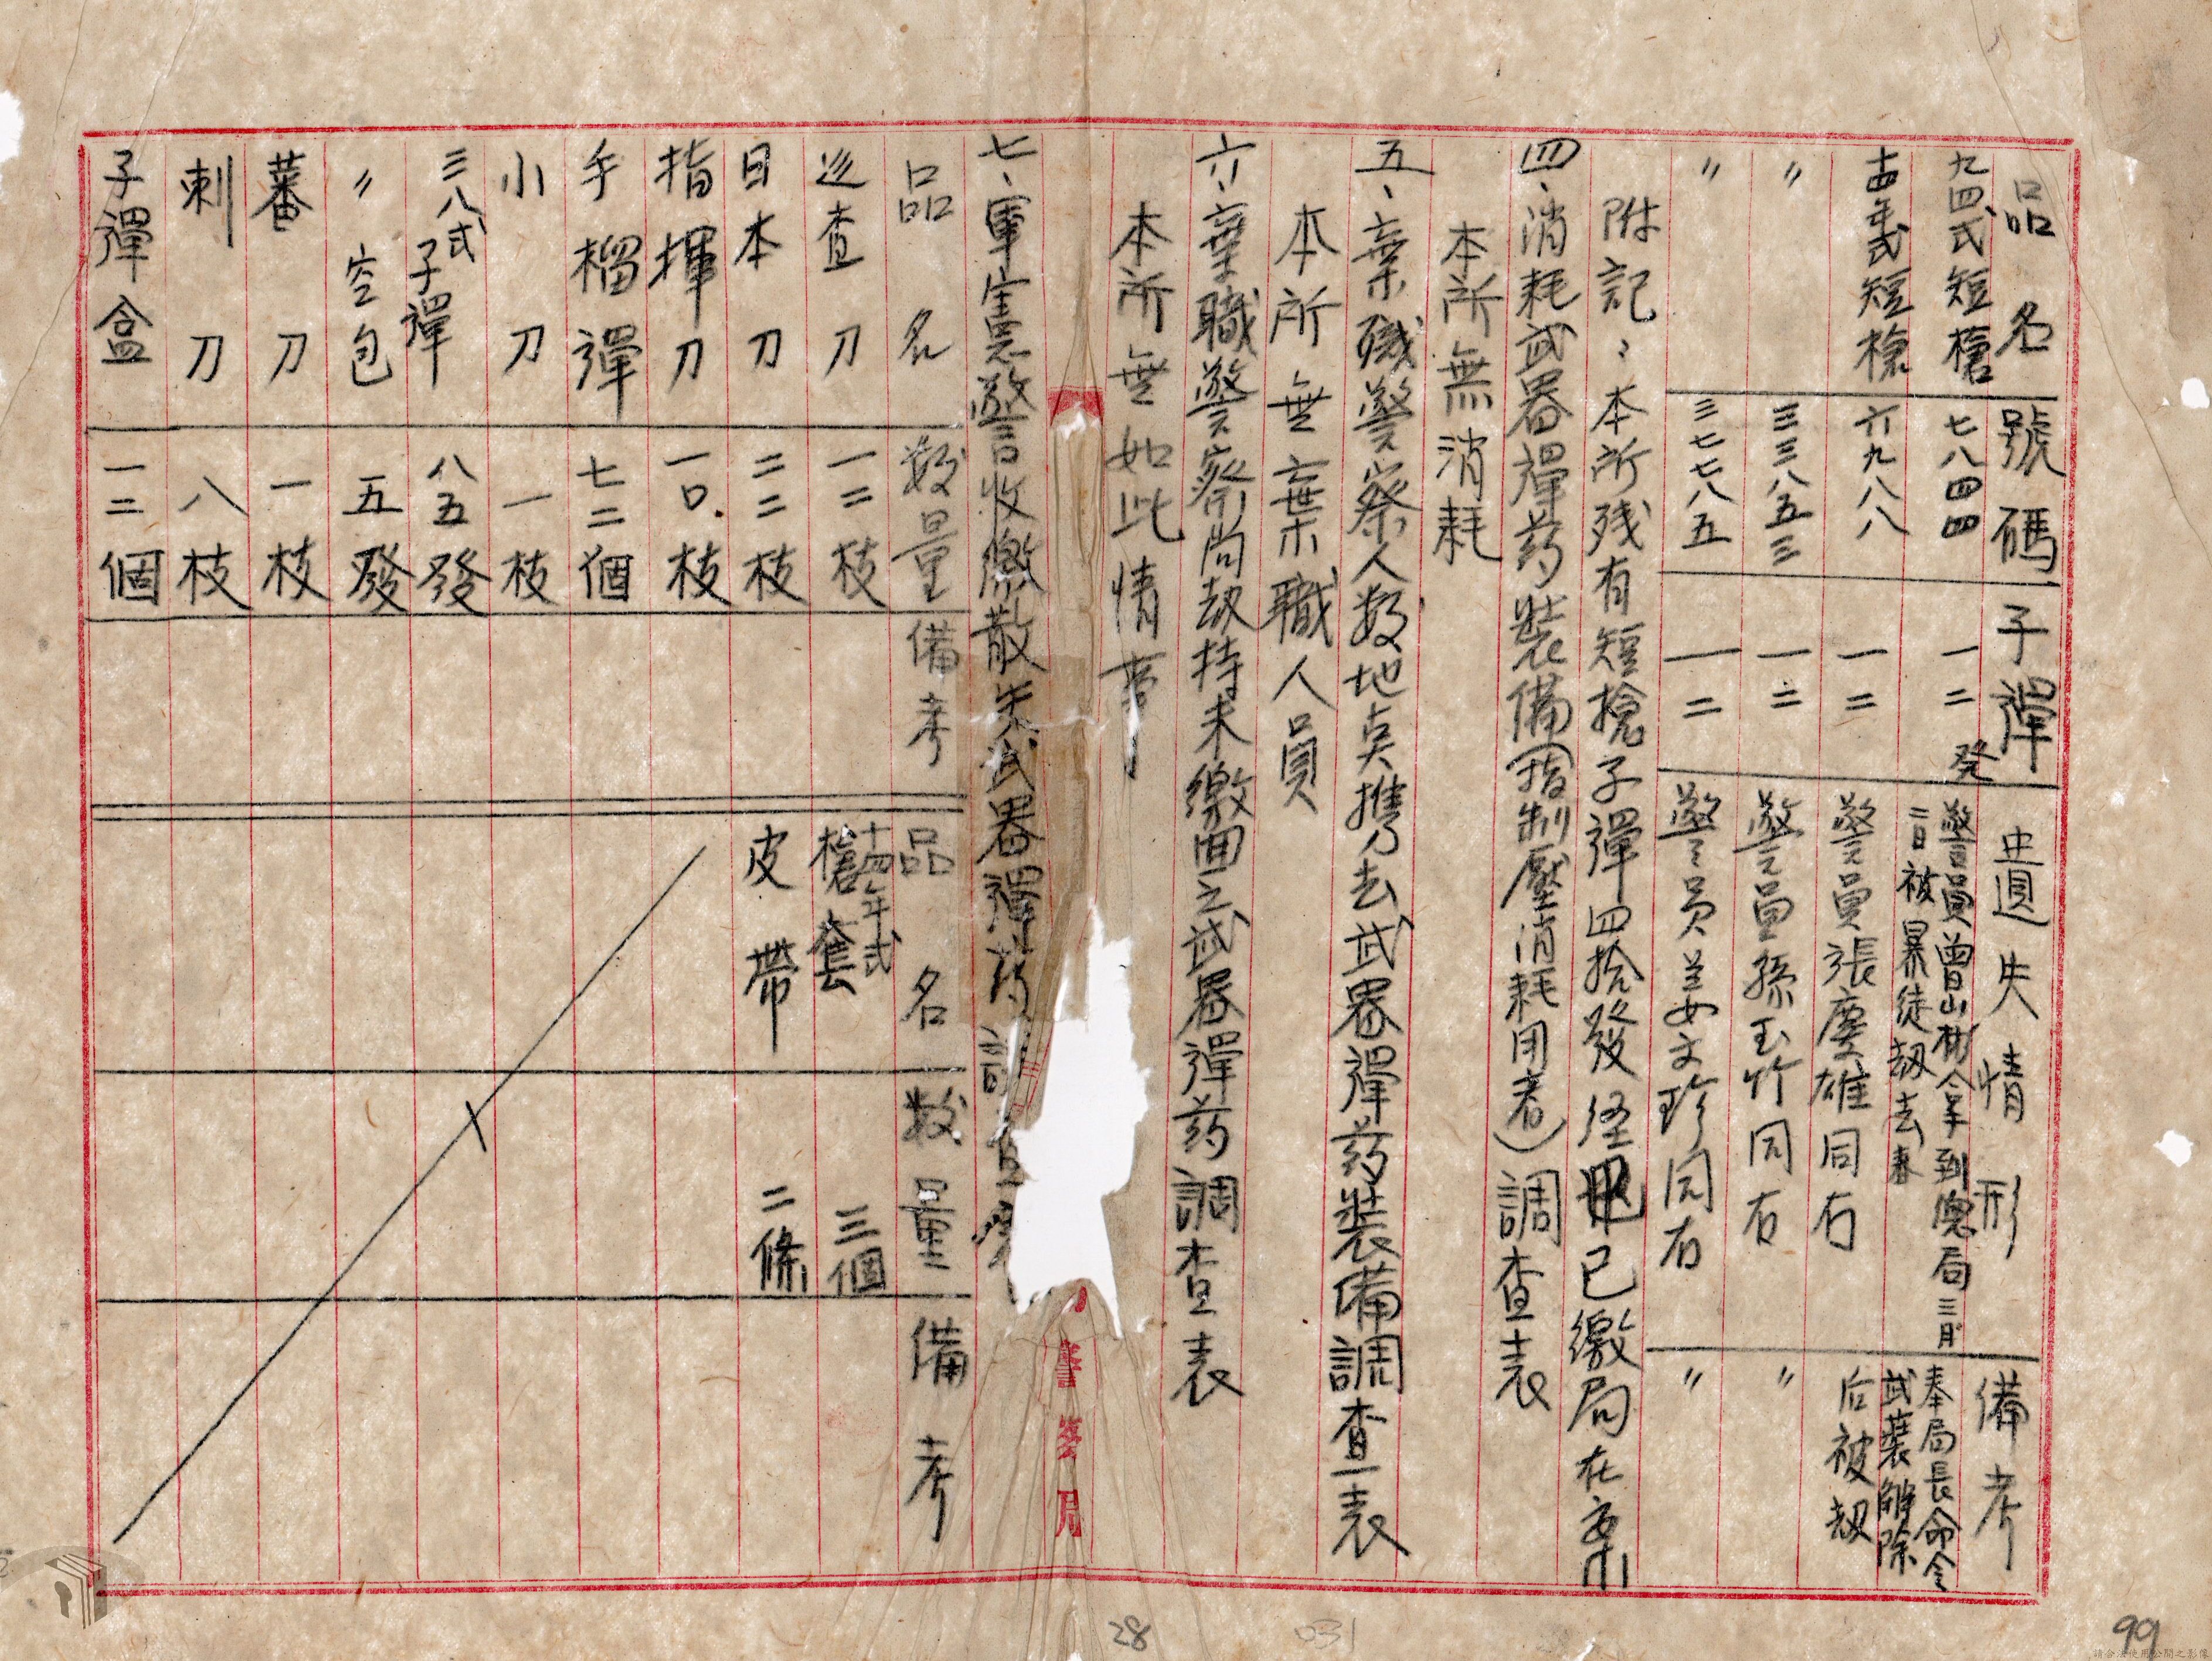 品名 號碼 子彈 遺失情形 備考
九四式短槍 七八四四 一二發 警員曾山樹拿到總局三月二日被暴徒劫去 奉局長命令武裝解除后被劫
十四年式短槍 六九八八 一二 警員張慶雄同右
〃 三三八五三 一二 警員孫玉竹同右 〃
〃 三七七八五 一二 警員姜文珍同右 〃
附記：本所残有短搶子彈四拾發經已繳局在案
四、消耗武器彈药裝備(指制壓消耗用者)調查表
本所無消耗
五、棄職警察人数地点携去武器彈药裝備調查表
本所無棄職人員
六、棄職警察尚劫持未繳回之武器彈药調查表
本所無如此情事
七、軍憲警收繳散失武器彈药調查
品名 数量 備考 品名 数量 備考
巡查刀 一二枝 十四年式槍套 三個
日本刀 二二枝 皮帶 二條
指揮刀 一〇枝
手榴彈 七二個
小刀 一枝
三八式子彈 八五發
〃空包 五發
蕃刀 一枝
刺刀 八枝
子彈盒 一二個
警察局
28
031
99
請合法使用公開之影像